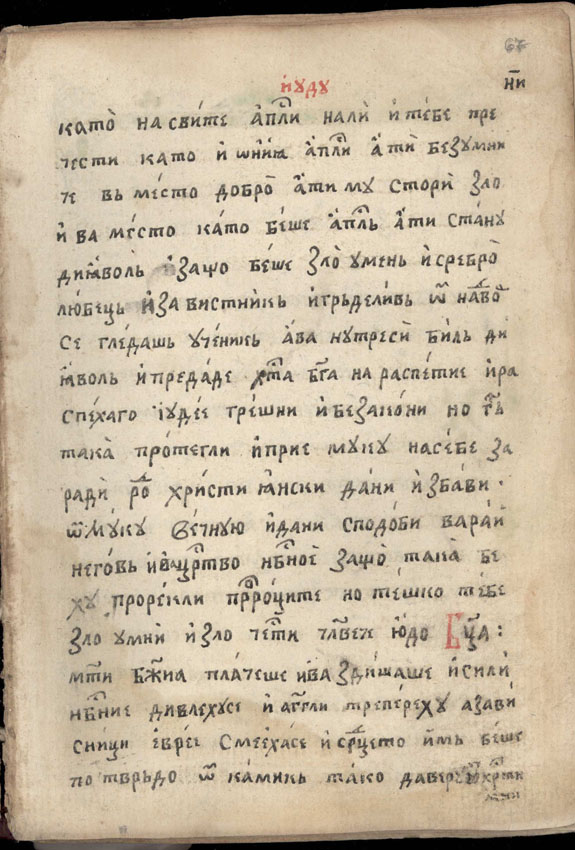 67
їѹдѹ
н҃и
като̀ на сви́те а҆пⷭ҇ли налѝ и҆ те́бе пре
че́сти като̀ и҆ ѡ҆нїꙗ а҆пⷭ҇ли а҆ тѝ безꙋ́мни
че въ ме́сто добро̀ а҆ти мꙋ сторѝ зло
и҆ ва ме́сто ка́то бе́ше а҆пⷭ҇лъ а҆ти ста́нꙋ
диꙗ́волъ и҆ защо беше зло̀ ꙋмень и҆ сребро̀
любець и҆ за вистникь и҆ грьделивь ѿ
се гле́дашь ꙋче́никь а҆ва нꙋтресѝ билъ ди
ꙗ҆волъ и҆ предаде хⷭ҇та бг҃а на распе́тие и҆ ра
спе́хаго їꙋде́е тре́шни и҆ беза ко́ни но
така̀ протегли и҆ прие мꙋкꙋ на се́бе за
радѝ христи ꙗ҆нски да́ни и҆збави ·
ѿ мꙋкꙋ ве́чнꙋю и҆ дани сподоби ва рай
неговь цⷭ҇рство нбⷭ҇ное защо̀ така̀ бе
хꙋ проре́кли прⷪ҇роците но тешко те́бе
зло ꙋмни и҆ зло юдо Бц҃а :
мт҃и бж҃иа пла́чеше и҆ ва здишаше и҆ сили
нбⷭ҇ние дивлехꙋсе и҆ а҆гг҃ли трепе́рехꙋ а зави
сници е҆вре́е смеехасе и҆ срⷣцето и҆мъ беше
по твръдо ѿ камикь тако